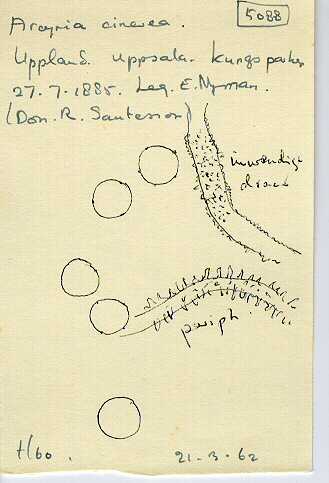 5088
Arcyria cinerea.
Uppland. Uppsala. Kungsparken
27.7.1885. Leg. E. Nyman.
(Don. R. Santesson)
inwendige
draad
periph.
t/60.
21-3-62